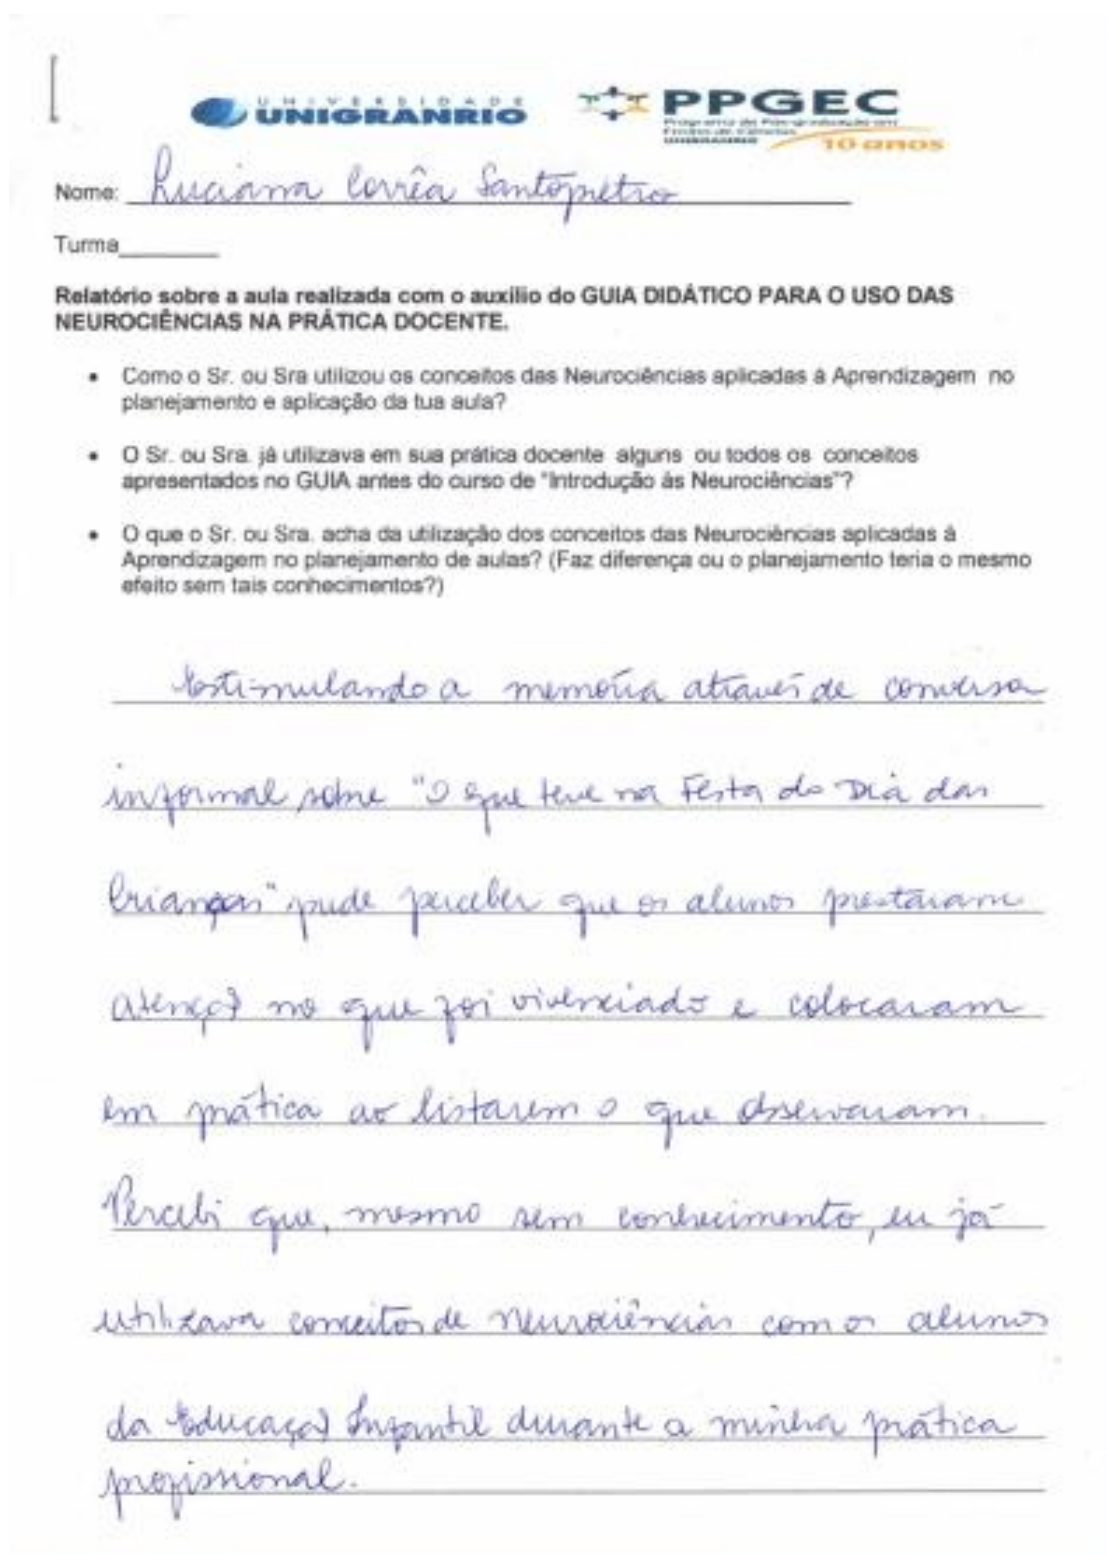 UNIVERSIDADE
UNIGRANRIO
PPGEC
Programa de Pós-graduação em
Ensino de Ciências
UNIGRANRIO
10 anos
Nome: Luciana Corrêa Santopietro
Turma
Relatório sobre a aula realizada com o auxilio do GUIA DIDÁTICO PARA O USO DAS
NEUROCIÊNCIAS NA PRÁTICA DOCENTE.
• Como o Sr. ou Sra utilizou os conceitos das Neurociências aplicadas à Aprendizagem no
planejamento e aplicação da tua aula?
• O Sr. ou Sra. já utilizava em sua prática docente alguns ou todos os conceitos
apresentados no GUIA antes do curso de "Introdução às Neurociências"?
• O que o Sr. ou Sra. acha da utilização dos conceitos das Neurociências aplicadas à
Aprendizagem no planejamento de aulas? (Faz diferença ou o planejamento teria o mesmo
efeito sem tais conhecimentos?)
Estimulando a memória através de conversa
informal sobre "O que teve na Festa do Dia das
Crianças" pude perceber que os alunos prestaram
atenção no que foi vivenciado e colocaram
em prática ao listarem o que observaram.
Percebi que, mesmo sem conhecimento, eu já
utilizava conceitos de Neurociências com os alunos
da Educação Infantil durante a minha prática
profissional.